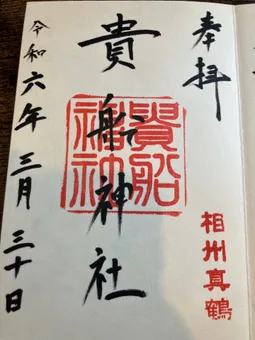 奉拝
貴船神社
貴船
神社
相州真鶴
令和六年三月三十日